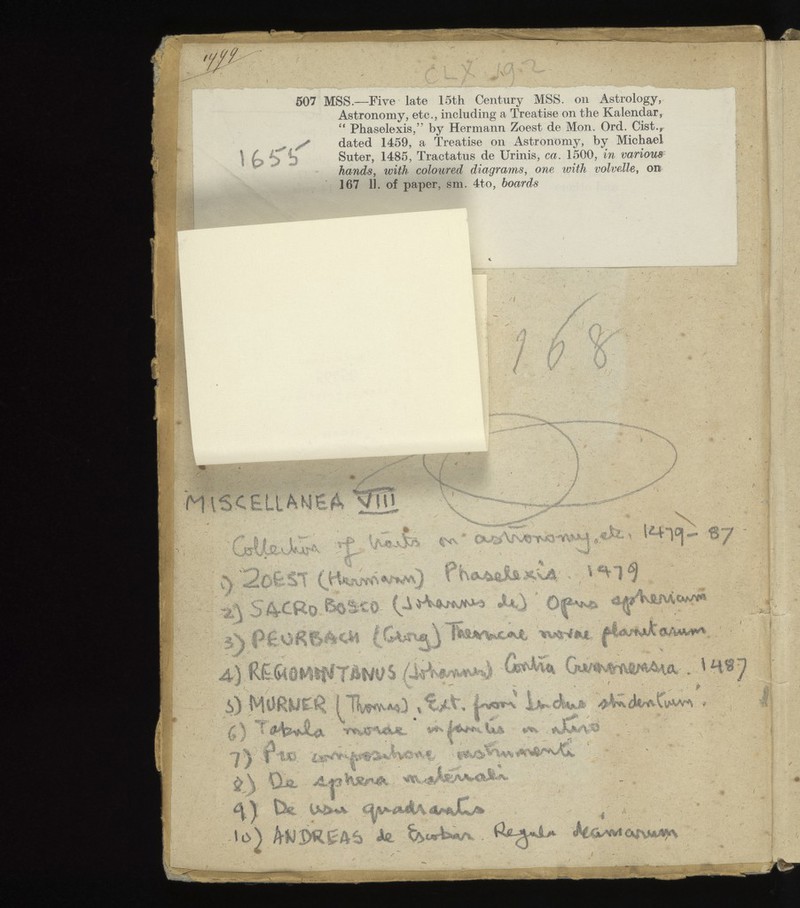 1479
CLX 19.2
507 MSS.—Five late 15th Century MSS. on Astrology,
Astronomy, etc., including a Treatise on the Kalendar,
“ Phaselexis,” by Hermann Zoest de Mon. Ord. Cist.,
dated 1459, a Treatise on Astronomy, by Michael
Suter, 1485, Tractatus de Urinis, ca. 1500, in various
hands, with coloured diagrams, one with volvelle, on
167 ll. of paper, sm. 4to, boards
1655
168
MISCELLANEA VIII
Collection of tracts on astronomy, etc. 1479-87
1) ZOEST (Hermann) Phaselexis. 1479
2) SACRO BOSCO (Johannes de) Opus sphericum
3) PEURBACH (Georg) Theoricae novae planetarum
4) REGIOMONTANUS (Johannes) Contra Cremonensia. 1487
5) MURNER (Thomas), Ext. from 'Ludus studentum'.
6) Tabula morae infantis in utero
7) Pro compositione instrumenti
8) De sphera materiali
9) De usu quadrantis
10) ANDREAS de Escobar. Regula decimarum